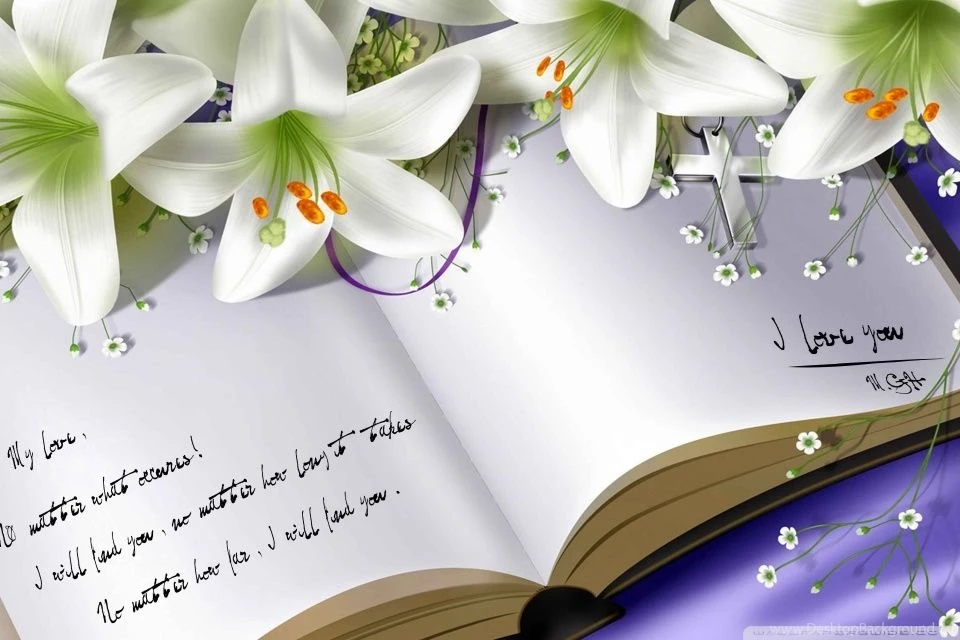 My love,
No matter what occures!
I will find you, no matter how long it takes
No matter how far, I will find you.
I love you
M.GH
www.DesktopBackground